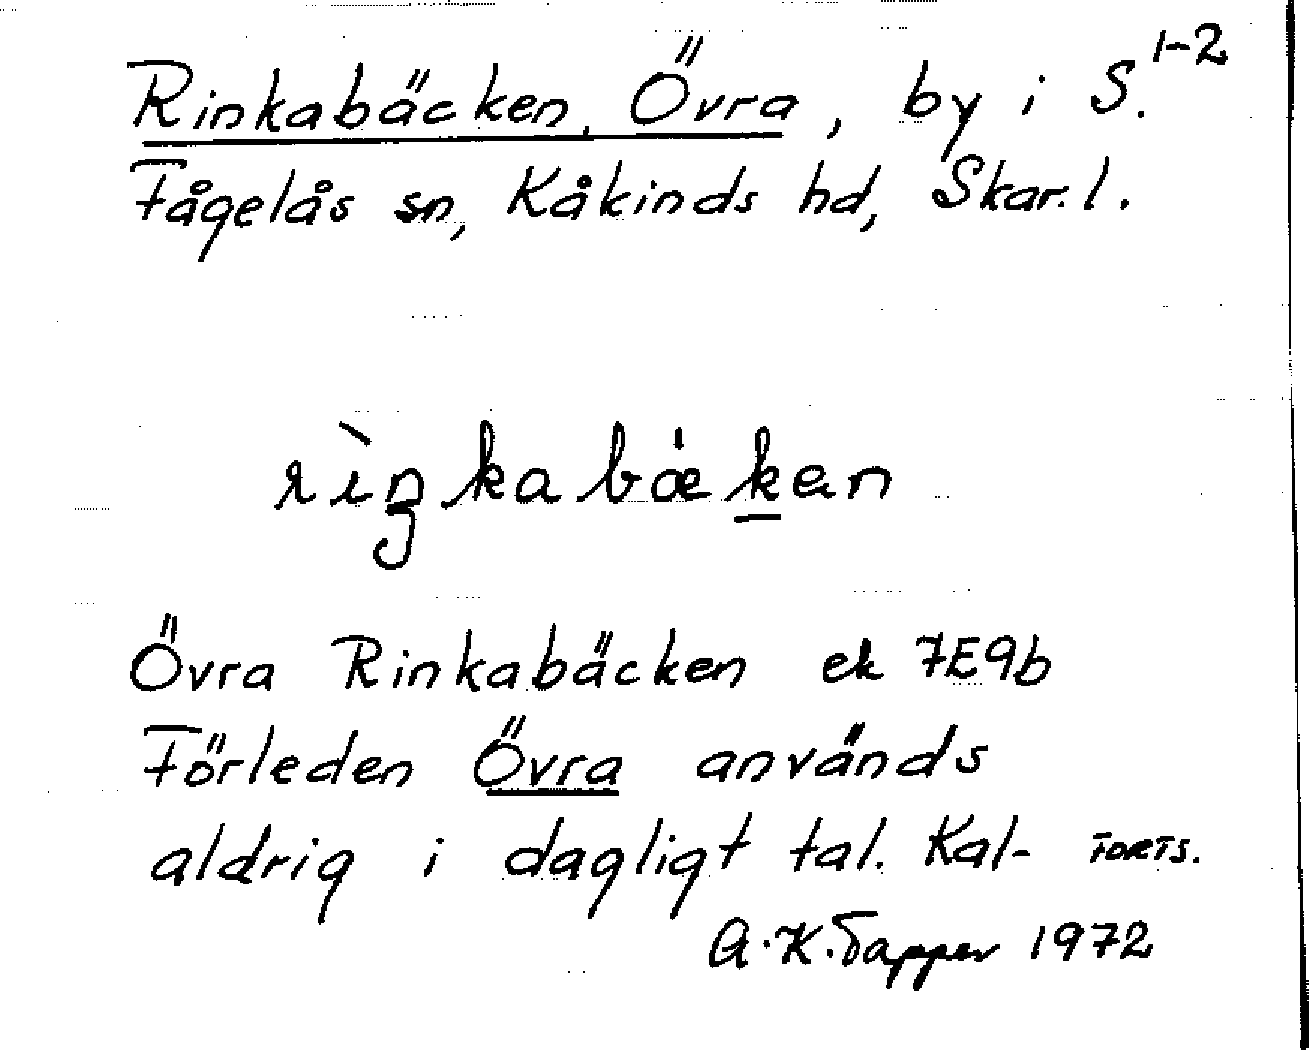 Rinkabäcken, Övra, by i S. 1-2
Fågelås sn, Kåkinds hd, Skar.l.
rìŋkabæ̇k̲en
Övra Rinkabäcken ek 7E9b
Förleden Övra används
aldrig i dagligt tal. Kal- FORTS.
A.K. Tapper 1972